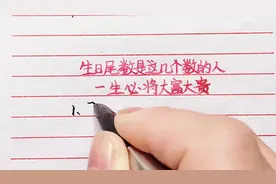 生日尾数是这几个数的人
一生必将大富大贵
1、